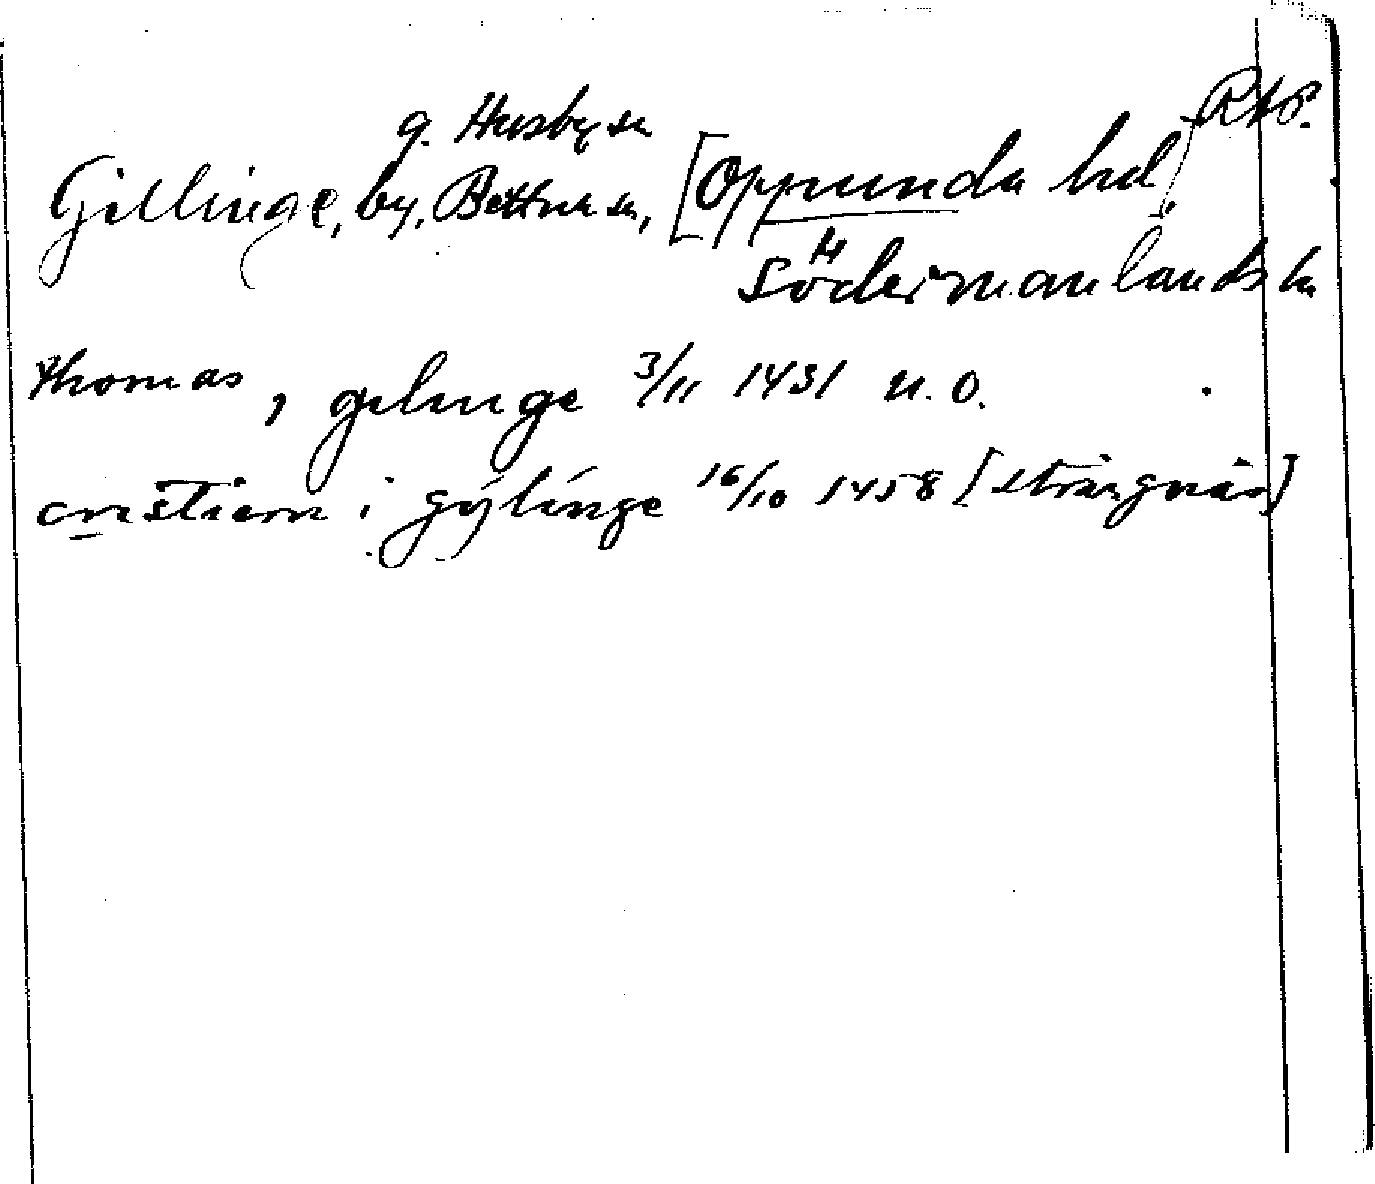 g. Husby sn RAP.
Gillinge, by, Bettna sn, [Oppunda hd]
Södermanlands ln
thomas, gelinge 3/11 1431 u. o.
cristiern i gylinge 16/10 1458 [strängnäs]